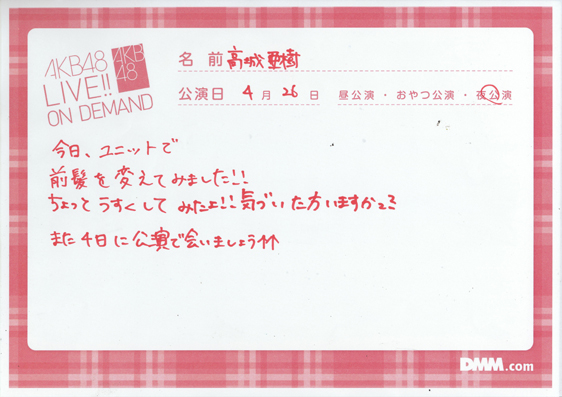 AKB48
LIVE!!
ON DEMAND
AKB
48
名 前 高城亜樹
公演日 4 月 26 日 昼公演・おやつ公演・夜公演
今日、ユニットで
前髪を変えてみました!!
ちょっとうすくしてみたょ!!気づいた方いますか??
また4日に公演で会いましょう↑↑
DMM.com